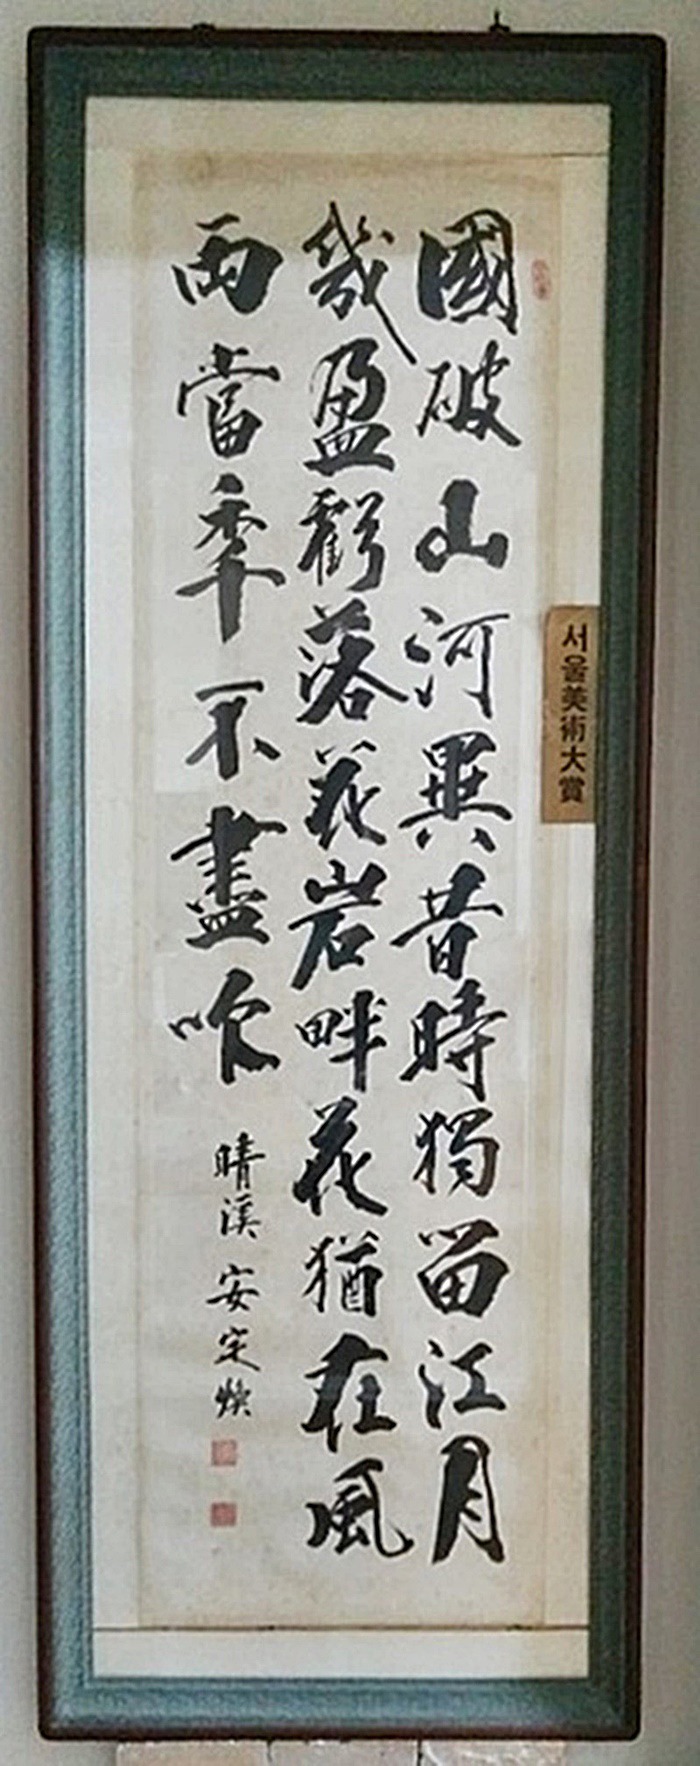 國破山河異昔時獨留江月
幾盈虧落花岩畔花猶在風
雨當年不盡吹
晴溪 安定煥
서울美術大賞